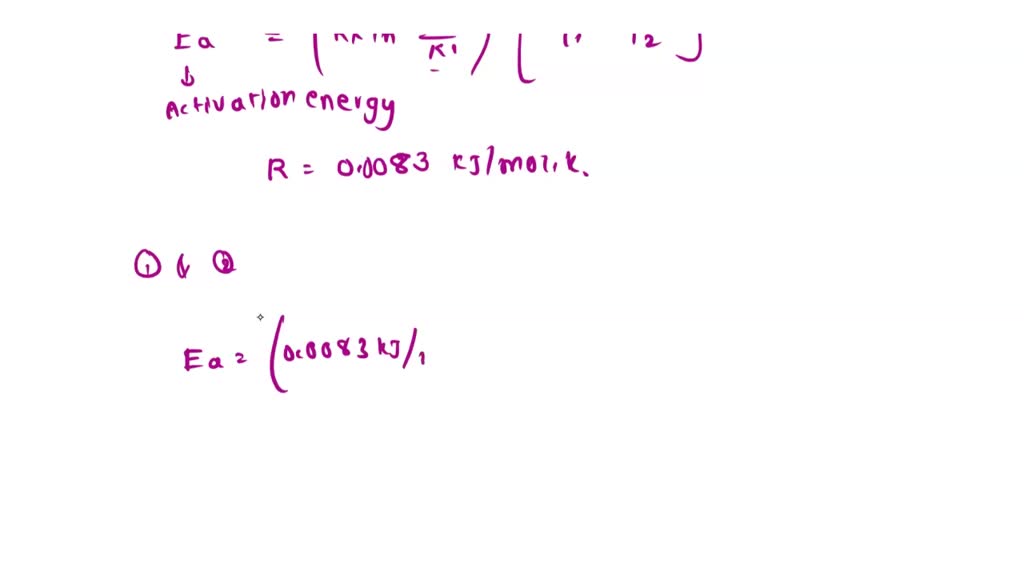 Ea = ( K1 ) [ T1 T2 ]
Activation energy
R = 0.0083 kJ/mol.k.
① & ②
Ea = (0.0083 kJ/